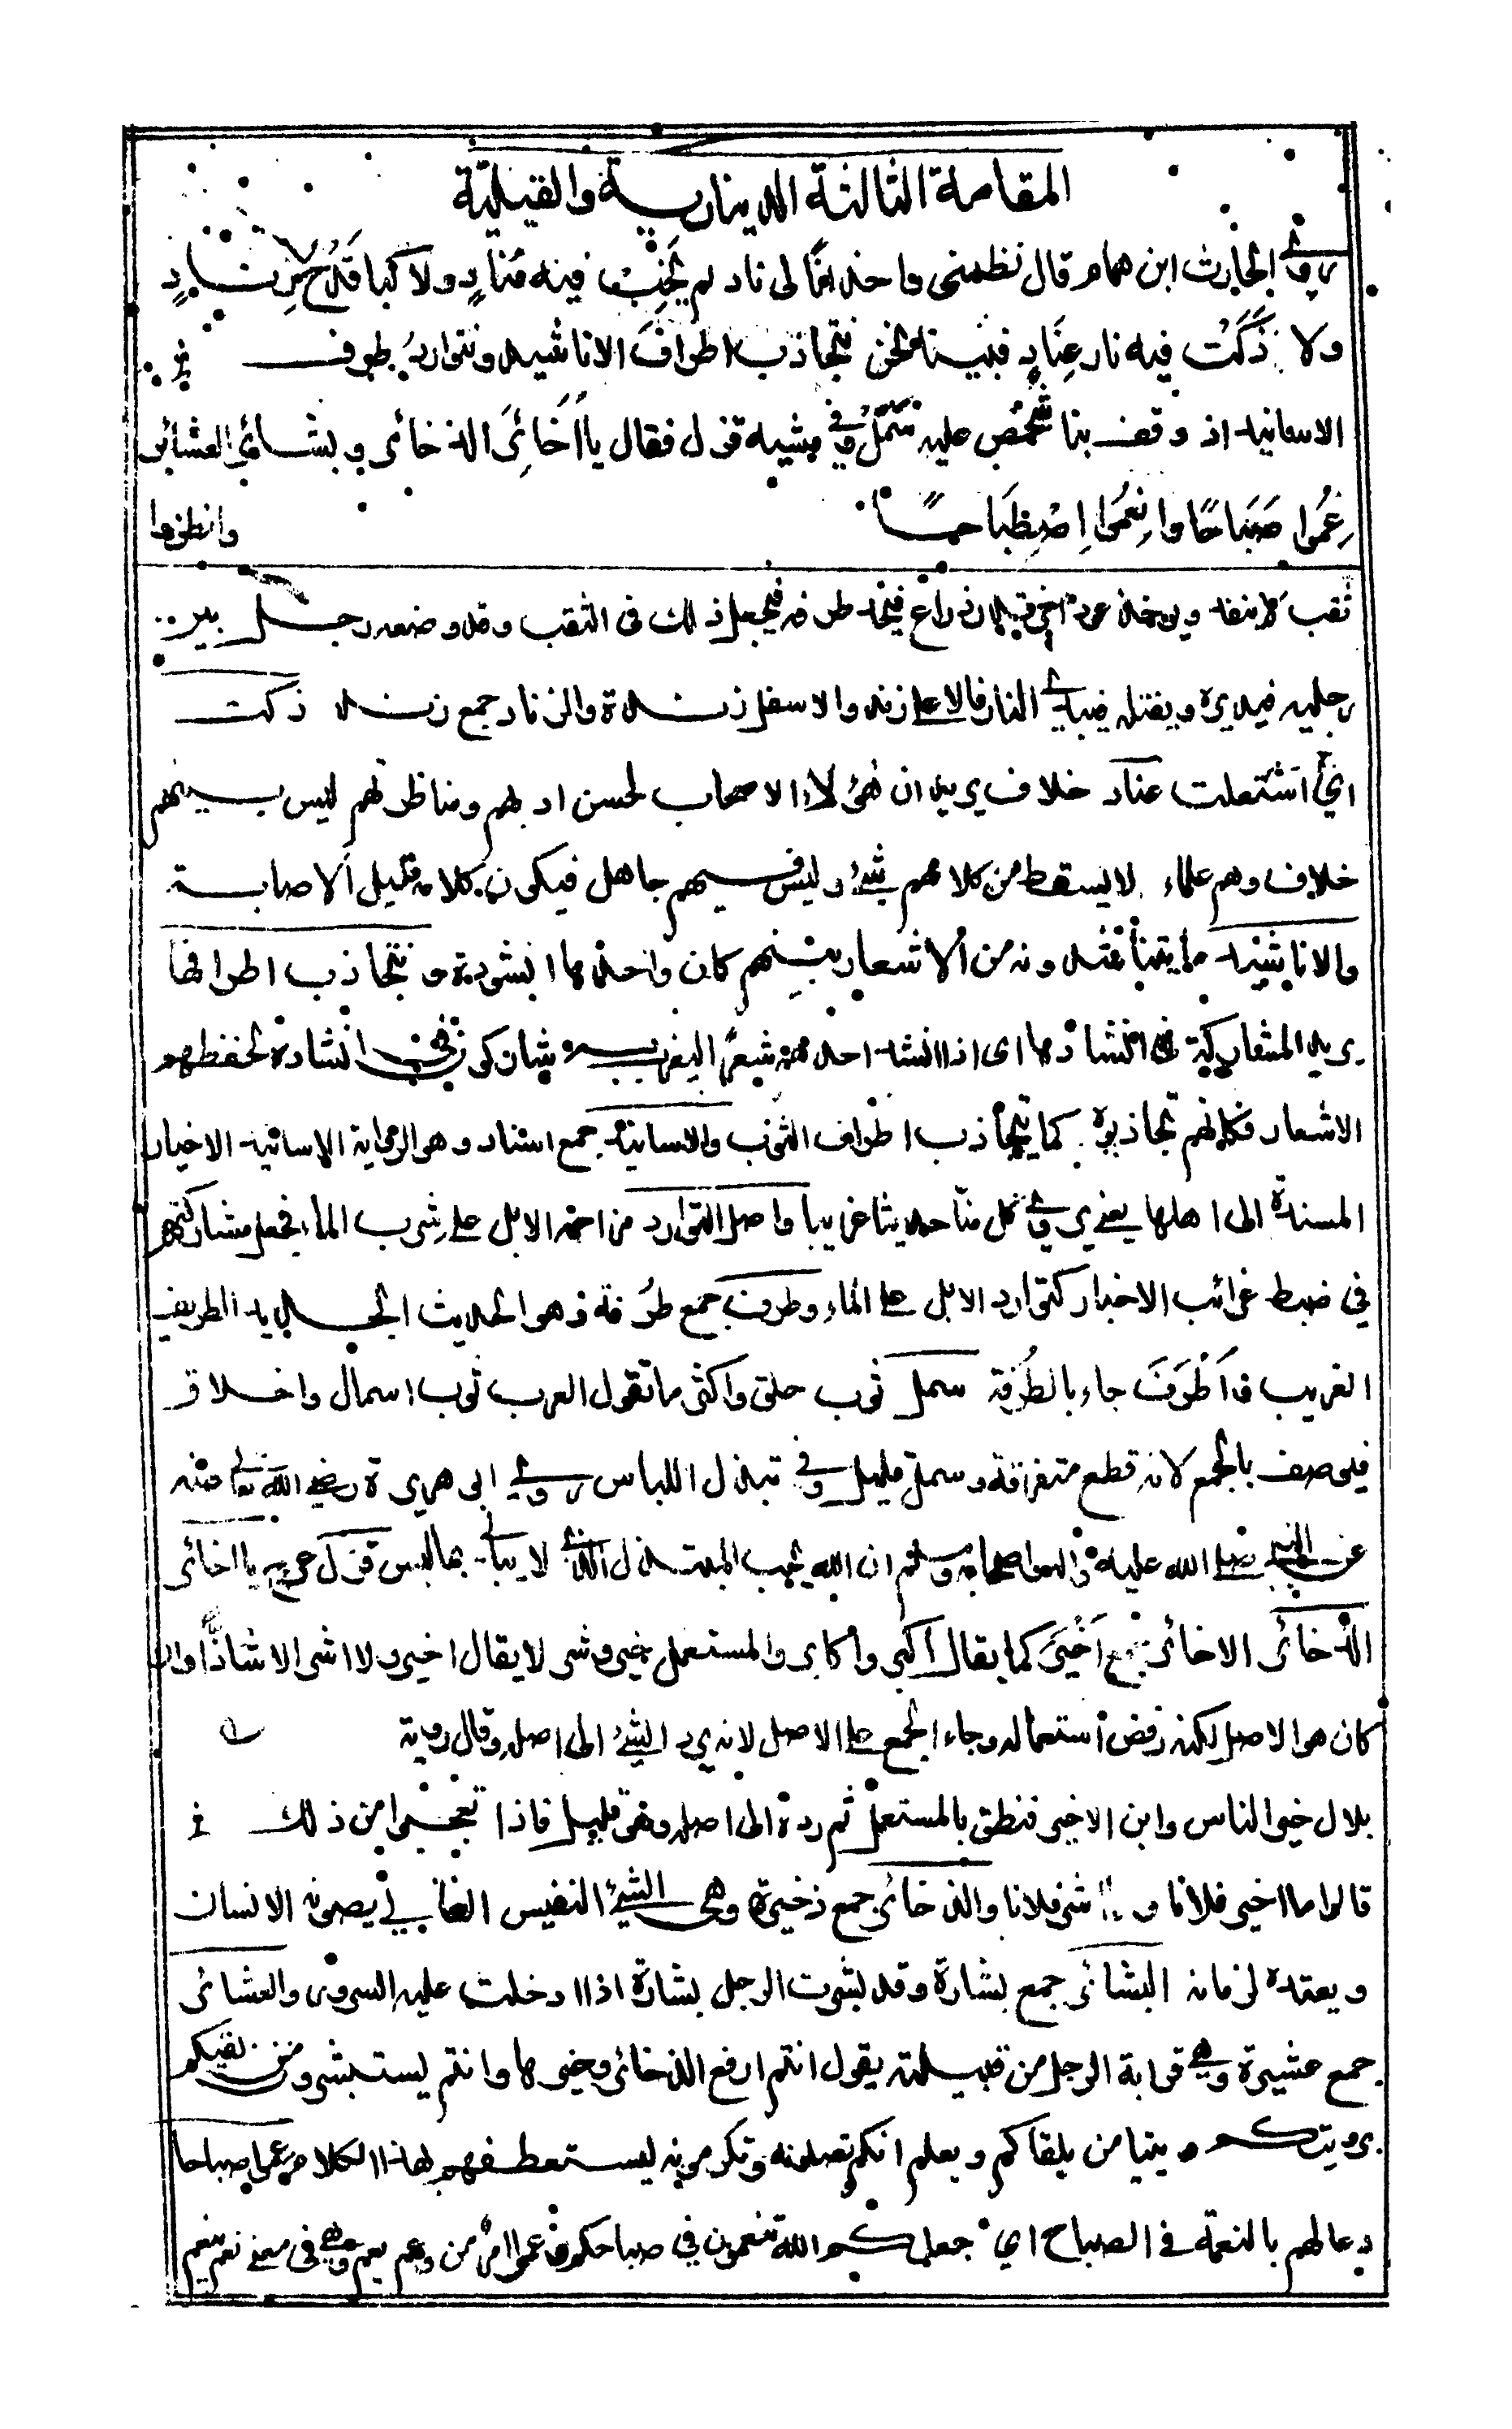 المقامة الثالثة الدينارية والقيلية
روى الحارث ابن همام قال نظمني واخدانا لي ناد لم يخب فيه مناد ولا كبا قدح زناد
ولا ذكت فيه نار عناد فبينا نحن نتجاذب اطراف الاناشيد ونتوارد طرف
الاسانيد اذ وقف بنا شخص عليه سمل وفي مشيه قزل فقال يا اخائر الذخائر وبشائر العشائر
عموا صباحا وانعموا اصطباحا وانظروا
ثقب لا ينفذ ويوخذ عود اخر قدر ذراع فيحد طرفه فيجعل ذلك في الثقب وقد وضعه رجل بين
رجليه فيديره ويفتله فيبدي النار فالاعلى زند والاسفل زندة والزناد جمع زند ذكت
اي اشتعلت عناد خلاف يريد ان هؤلاء الاصحاب لحسن ادبهم ومناظرتهم ليس بينهم
خلاف وهم علماء لا يسقط من كلامهم شئ وليس فيهم جاهل فيكون كلامه قليل الاصابة
والاناشيد ما يتناشدونه من الاشعار بينهم كان واحدها انشودة و نتجاذب اطرافها
يريد المشاركة في انشادها اي اذا انشد احدهم شعرا ليغرب به يشاركوه في انشاده لحفظهم
الاشعار فكانهم تجاذبوه كما يتجاذب اطراف الثوب والاسانيد جمع اسناد وهو الرواية الاسانيد الاخبار
المسندة الى اهلها يعني يروي كل منا حديثا غريبا واصل التوارد مزاحمة الابل على شرب الماء فجعل مشاركتهم
في ضبط غرائب الاخبار كتوارد الابل على الماء وطرف جمع طرفة وهو الحديث الجديد الطريف
الغريب و اطرف جاء بالطرفة سمل ثوب خلق واكثر ما تقول العرب ثوب اسمال واخلاق
فيوصف بالجمع لانه قطع متفرقة وسمل قليل وفي تبذل اللباس روى ابي هريرة رضي الله تعالى عنه
عن النبي صلى الله عليه و اله واصحابه وسلم ان الله يحب المبتذل الذي لا يبالي بما لبس قزل عرج يا اخائر
الذخائر الاخائر جمع اخير كما يقال اكبر واكابر والمستعمل خير وشر لا يقال اخير ولا اشر الا شاذا وان
كان هو الاصل لكنه رفض استعماله وجاء الجمع على الاصل لانه يرد الشئ الى اصله وقال روبة
بلال خير الناس وابن الاخير فنطق بالمستعمل ثم رده الى اصله وهو قليل فاذا تعجبوا من ذلك
قالوا ما اخير فلانا و اشر فلانا والذخائر جمع ذخيرة وهي الشئ النفيس الغالي يصونه الانسان
ويعتده لزمانه البشائر جمع بشارة وقد بشرت الرجل بشارة اذا ادخلت عليه السرور والعشائر
جمع عشيرة وهي قرابة الرجل من قبيلته يقول انتم ارفع الذخائر وخيرها وانتم يستبشر من لقيكم
برويتكم من يلقاكم ويعلم انكم تصلونه وتكرمونه ليستعطفهم بهذا الكلام عموا صباحا
دعا لهم بالنعمة في الصباح اي جعلكم الله تنعمون في صباحكم وعموا امر من وعم يعم وهي في معنى نعم ينعم